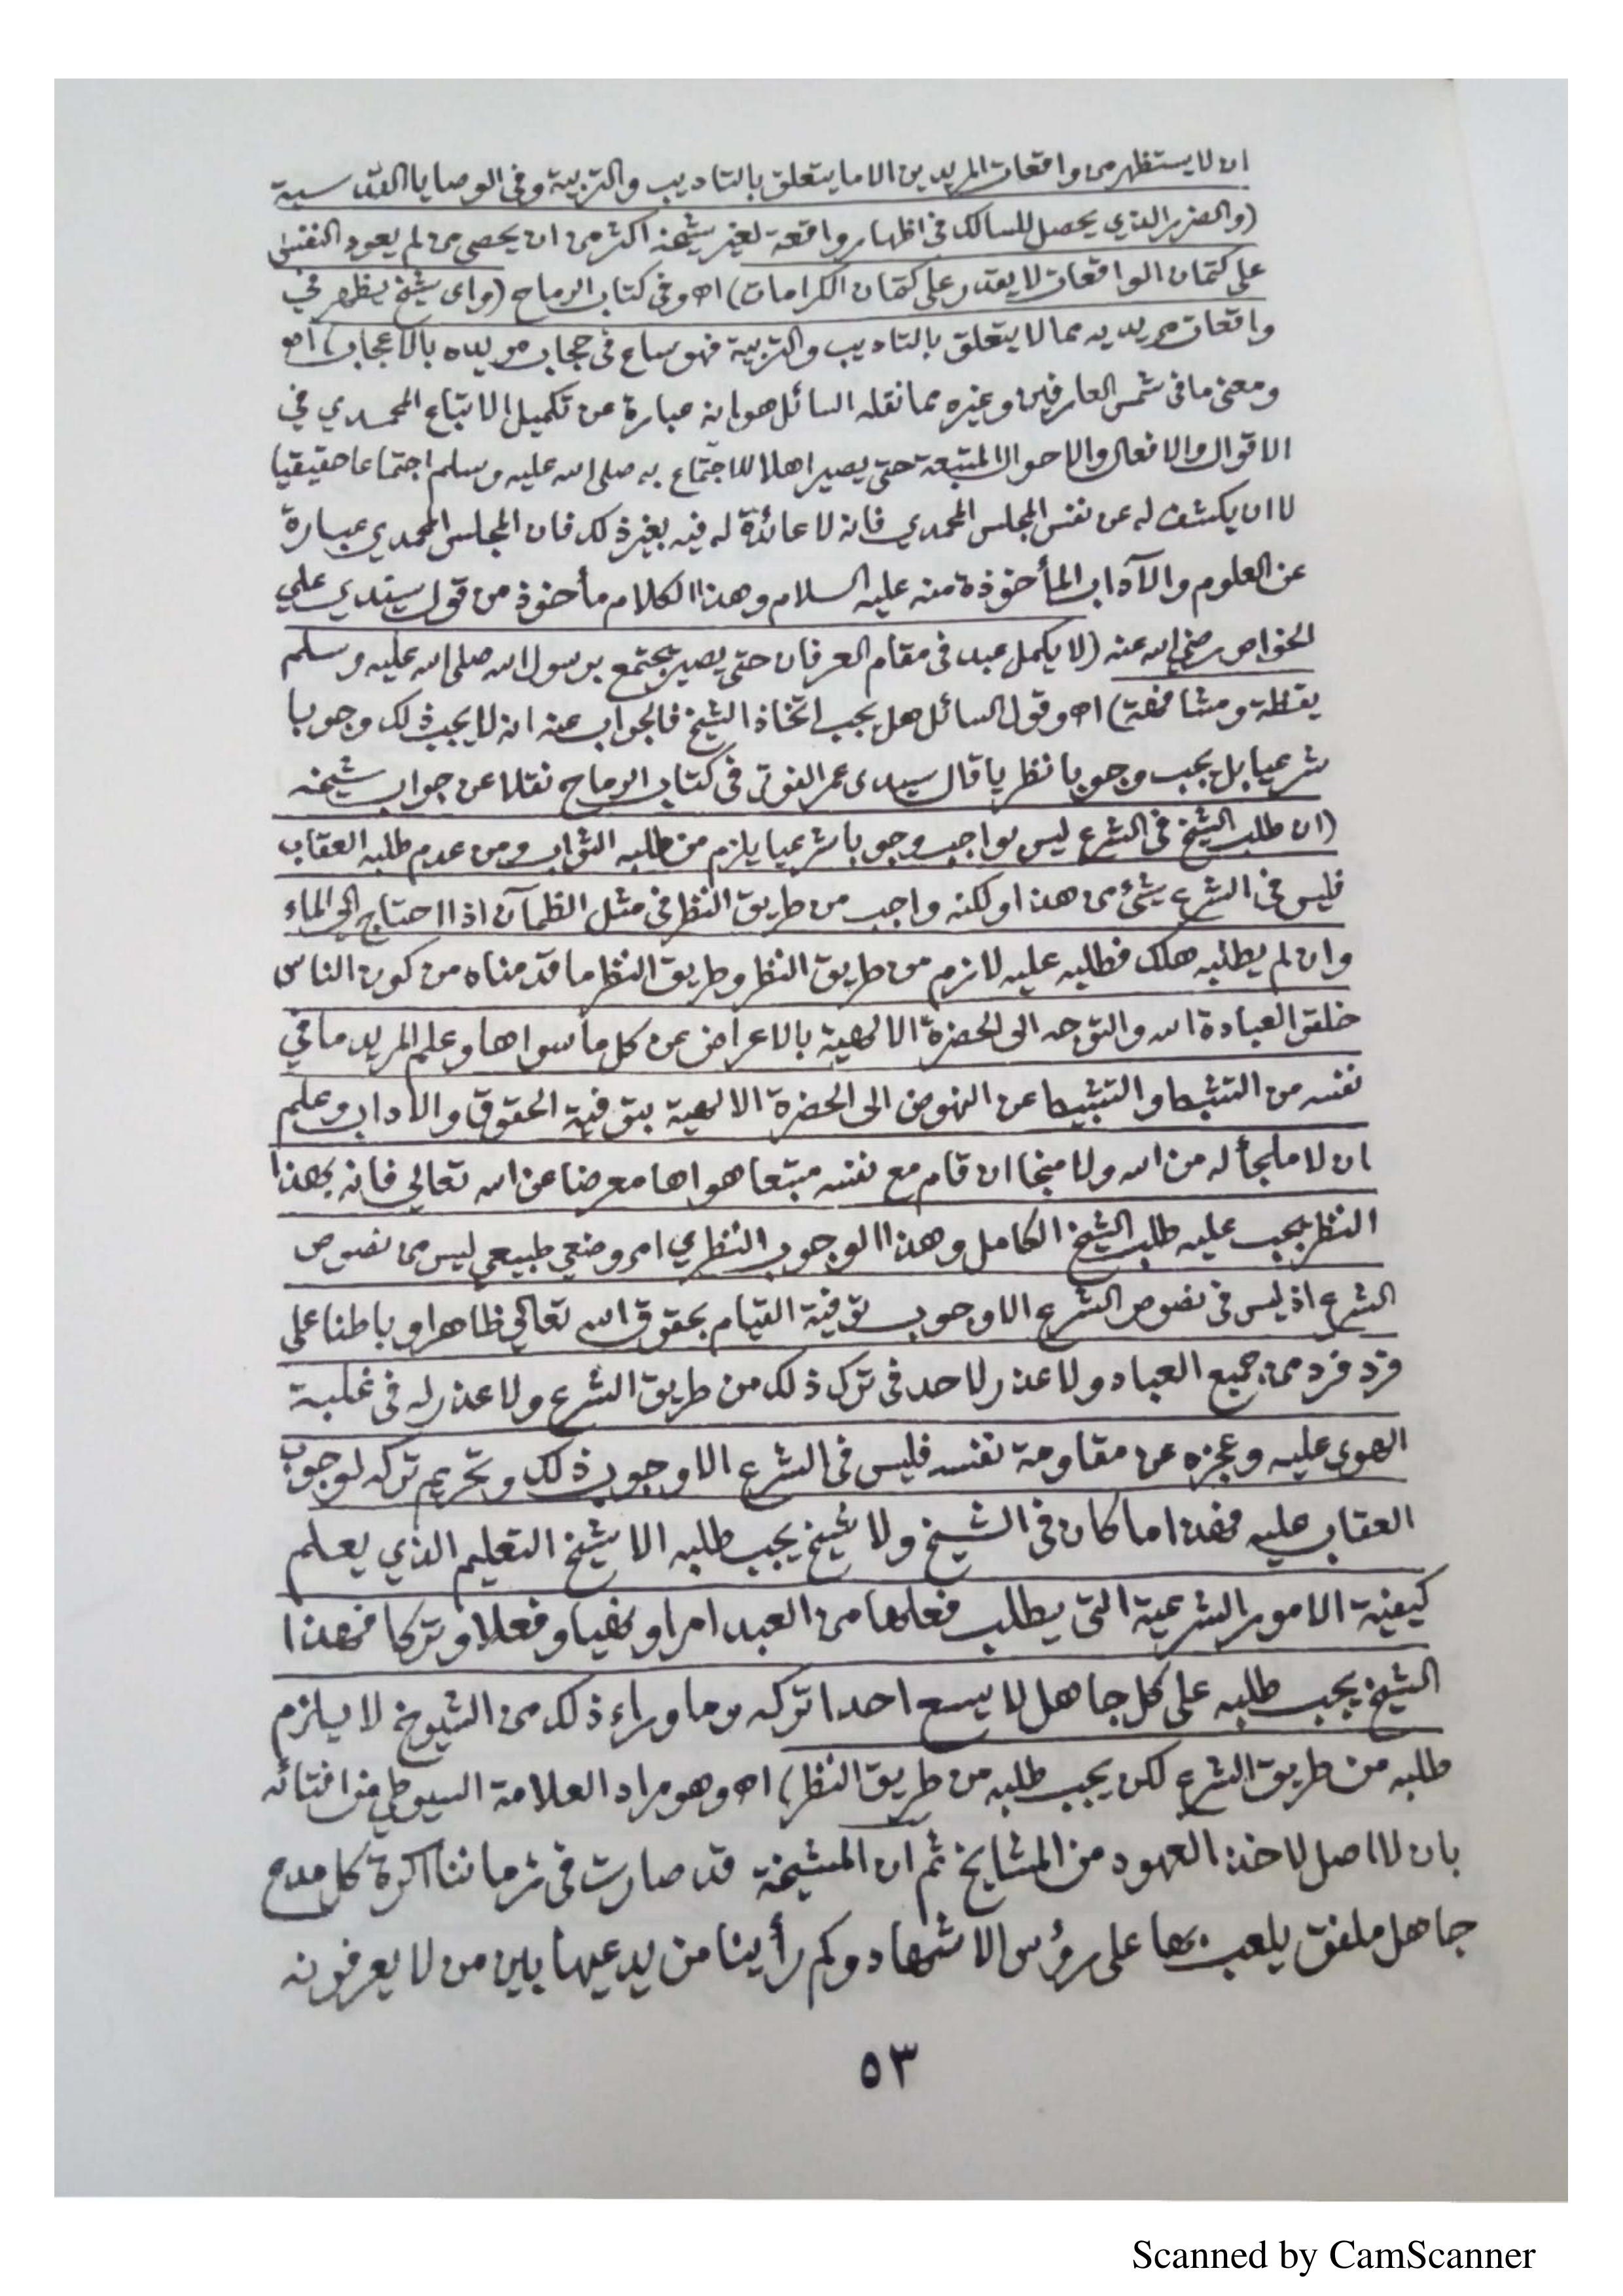 ان لا يستظهر من واقعات المريدين الا ما يتعلق بالتاديب والتربية وفى الوصايا القدسية
(والضرر الذي يحصل للسالك فى اظهار واقعة لغير شيخه اكثر من ان يحصى من لم يعود النفس
على كتمان الواقعات لا يقدر على كتمان الكرامات) اه وفى كتاب الرماح (واى شيخ يظهر في
واقعات مريديه مما لا يتعلق بالتاديب والتربية فهو ساع فى حجاب مريده بالاعجاب) اه
ومعنى ما فى شمس العارفين وغيره مما نقله السائل هو انه عبارة عن تكميل الاتباع المحمدي في
الاقوال والافعال والاحوال المتبعة حتى يصير اهلا للاجتماع به صلى الله عليه وسلم اجتماعا حقيقيا
لا ان يكشف له عن نفس المجلس المحمدي فانه لا عائدة له فيه بغير ذلك فان المجلس المحمدي عبارة
عن العلوم والآداب المأخوذة منه عليه السلام وهذا الكلام مأخوذ من قول سيدي علي
الخواص رضي الله عنه (لا يكمل عبد فى مقام العرفان حتى يصير يجتمع برسول الله صلى الله عليه وسلم
يقظة ومشافهة) اه وقول السائل هل يجب اتخاذ الشيخ فالجواب عنه انه لا يجب ذلك وجوبا
شرعيا بل يجب وجوبا نظريا قال سيدى عمر الفوتى فى كتاب الرماح نقلا عن جواب شيخه
(ان طلب الشيخ فى الشرع ليس بواجب وجوبا شرعيا يلزم من طلبه الثواب ومن عدم طلبه العقاب
فليس فى الشرع شئ من هذا ولكنه واجب من طريق النظر فى مثل الظمآن اذا احتاج الى الماء
وان لم يطلبه هلك فطلبه عليه لازم من طريق النظر وطريق النظر ما قدمناه من كون الناس
خلقوا لعبادة الله والتوجه الى الحضرة الالهية بالاعراض عن كل ما سواها وعلم المريد ما في
نفسه من التثبط والتثبيط عن النهوض الى الحضرة الالهية بتوفية الحقوق والآداب وعلم
ان لا ملجأ له من الله ولا منجا ان قام مع نفسه متبعا هواها معرضا عن الله تعالي فانه بهذا
النظر يجب عليه طلب الشيخ الكامل وهذا الوجوب النظري امر وضعي طبيعي ليس من نصوص
الشرع اذ ليس فى نصوص الشرع الا وجوب توفية القيام بحقوق الله تعالي ظاهرا وباطنا على
فرد فرد من جميع العباد ولا عذر لاحد فى ترك ذلك من طريق الشرع ولا عذر له فى غلبة
الهوى عليه وعجزه عن مقاومة نفسه فليس فى الشرع الا وجوب ذلك وتحريم تركه لوجوب
العقاب عليه فهذا ما كان فى الشيخ ولا شيخ يجب طلبه الا شيخ التعليم الذي يعلم
كيفية الامور الشرعية التى يطلب فعلها من العبد امرا ونهيا وفعلا وتركا فهذا
الشيخ يجب طلبه على كل جاهل لا يسع احدا تركه وما وراء ذلك من الشيوخ لا يلزم
طلبه من طريق الشرع لكن يجب طلبه من طريق النظر) اه وهو مراد العلامة السيوطى من افتائه
بان لا اصل لاخذ العهود من المشايخ ثم ان المشيخة قد صارت فى زماننا اكرة كل مدع
جاهل ملفق يلعب بها على رؤس الاشهاد وكم رأينا من يدعيها بين من لا يعرفونه
٥٣
Scanned by CamScanner